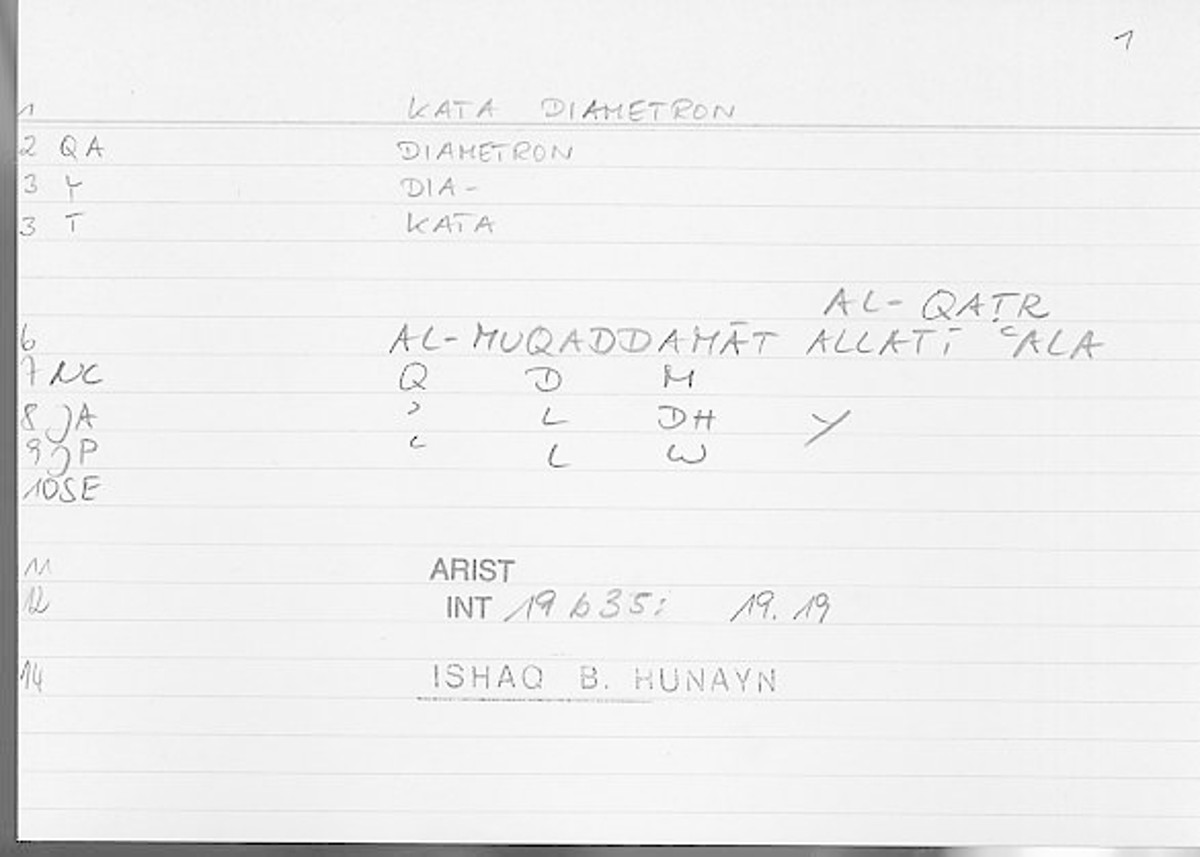 1
1 KATA DIAMETRON
2 QA DIAMETRON
3 Y DIA-
3 T KATA
AL-QAṬR
6 AL-MUQADDAMĀT ALLATĪ ʿALA
7 NC Q D M
8 JA ʾ L DH Y
9 JP ʿ L W
10 SE
11 ARIST
12 INT 19 b 35: 19. 19
14 ISHAQ B. HUNAYN